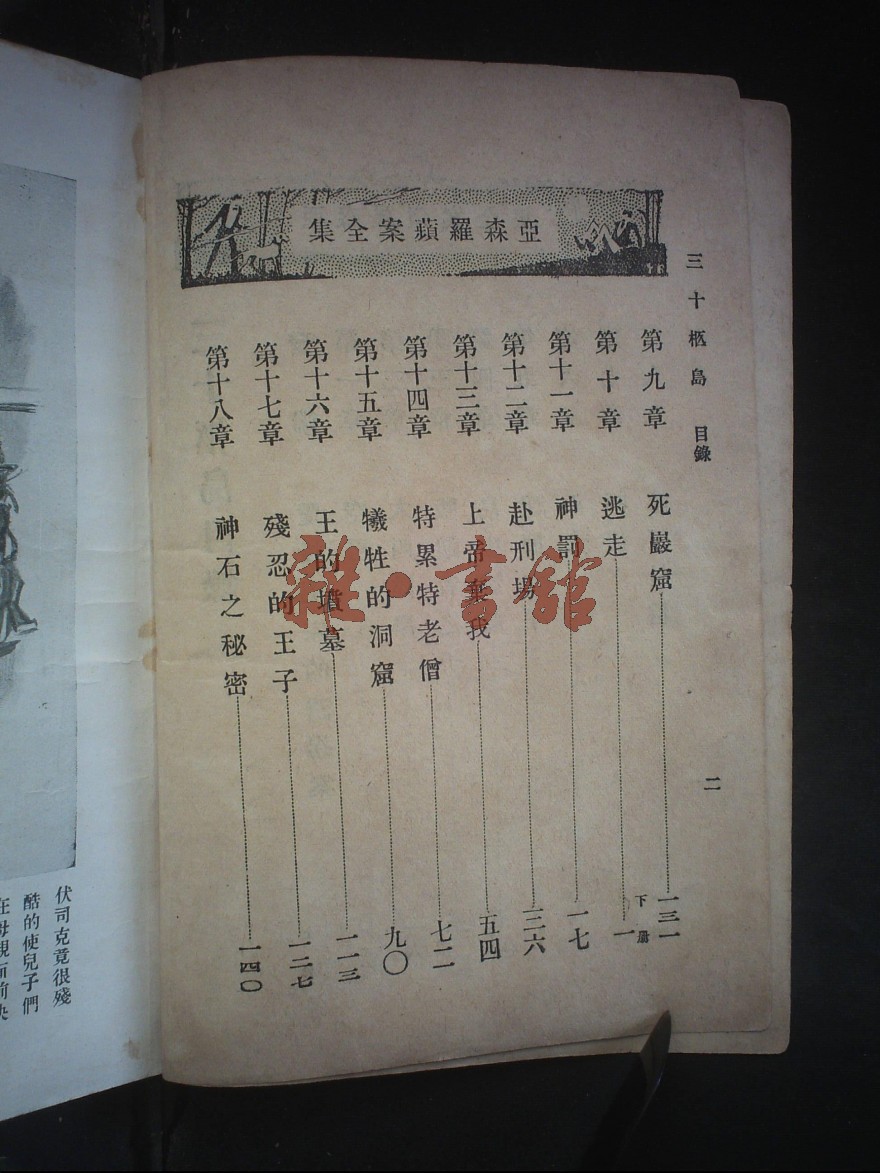 亞森羅蘋案全集
三十柩島 目錄
二
第九章 死巖窟 一三一
第十章 逃走 下册 一
第十一章 神罰 一七
第十二章 赴刑場 三六
第十三章 上帝棄我 五四
第十四章 特累特老僧 七二
第十五章 犧牲的洞窟 九〇
第十六章 王的墳墓 一一三
第十七章 殘忍的王子 一二七
第十八章 神石之秘密 一四〇
雜·書館
伏司克竟很殘
酷的使兒子們
在母親面前決